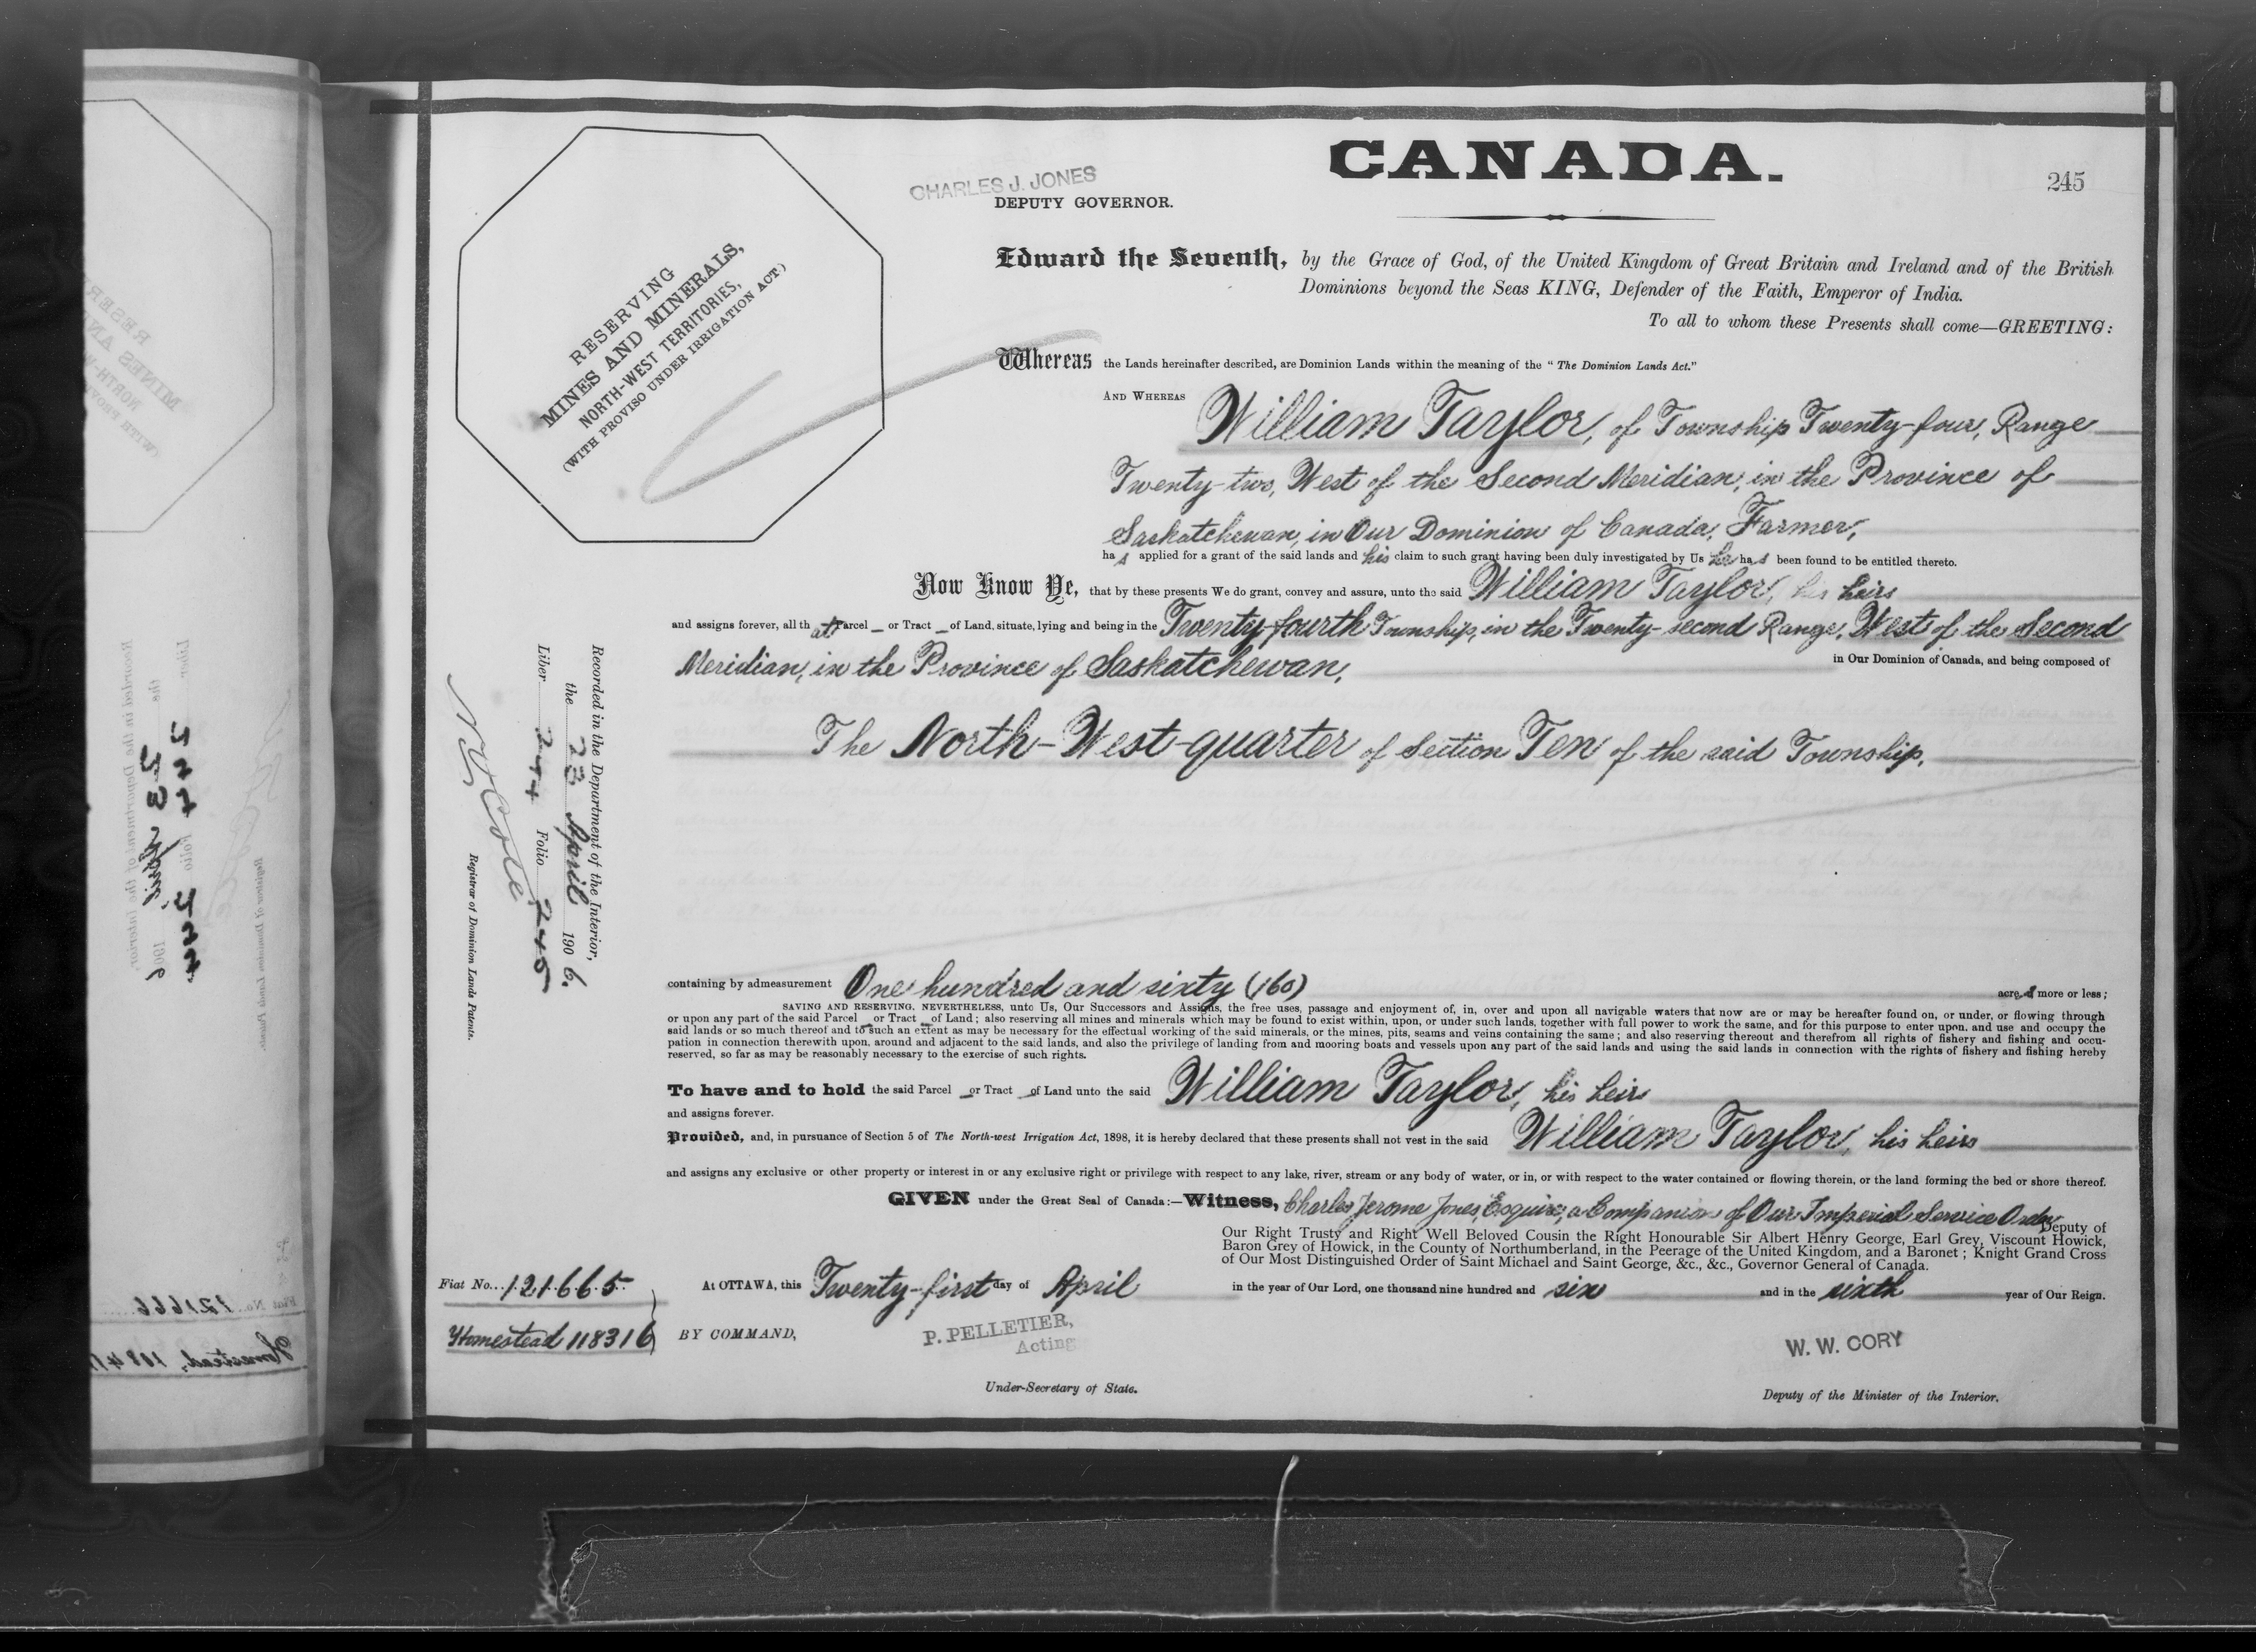 CANADA.
245
CHARLES J. JONES
DEPUTY GOVERNOR.
RESERVING
MINES AND MINERALS,
NORTH-WEST TERRITORIES,
(WITH PROVISO UNDER IRRIGATION ACT)
Edward the Seventh, by the Grace of God, of the United Kingdom of Great Britain and Ireland and of the British
Dominions beyond the Seas KING, Defender of the Faith, Emperor of India.
To all to whom these Presents shall come—GREETING:
Whereas the Lands hereinafter described, are Dominion Lands within the meaning of the "The Dominion Lands Act."
AND WHEREAS William Taylor, of Township Twenty-four, Range
Twenty-two, West of the Second Meridian, in the Province of
Saskatchewan, in Our Dominion of Canada, Farmer,
has applied for a grant of the said lands and his claim to such grant having been duly investigated by Us he has been found to be entitled thereto.
Now Know Ye, that by these presents We do grant, convey and assure, unto the said William Taylor, his heirs
and assigns forever, all that Parcel — or Tract — of Land, situate, lying and being in the Twenty-fourth Township, in the Twenty-second Range, West of the Second
Meridian, in the Province of Saskatchewan,
in Our Dominion of Canada, and being composed of
The North-West-quarter of Section Ten of the said Township.
containing by admeasurement One hundred and sixty (160) acres more or less;
SAVING AND RESERVING, NEVERTHELESS, unto Us, Our Successors and Assigns, the free uses, passage and enjoyment of, in, over and upon all navigable waters that now are or may be hereafter found on, or under, or flowing through
or upon any part of the said Parcel — or Tract — of Land; also reserving all mines and minerals which may be found to exist within, upon, or under such lands, together with full power to work the same, and for this purpose to enter upon, and use and occupy the
said lands or so much thereof and to such an extent as may be necessary for the effectual working of the said minerals, or the mines, pits, seams and veins containing the same; and also reserving thereout and therefrom all rights of fishery and fishing and occu-
pation in connection therewith upon, around and adjacent to the said lands, and also the privilege of landing from and mooring boats and vessels upon any part of the said lands and using the said lands in connection with the rights of fishery and fishing hereby
reserved, so far as may be reasonably necessary to the exercise of such rights.
To have and to hold the said Parcel — or Tract — of Land unto the said William Taylor, his heirs
and assigns forever.
Provided, and, in pursuance of Section 5 of The North-west Irrigation Act, 1898, it is hereby declared that these presents shall not vest in the said William Taylor, his heirs
and assigns any exclusive or other property or interest in or any exclusive right or privilege with respect to any lake, river, stream or any body of water, or in, or with respect to the water contained or flowing therein, or the land forming the bed or shore thereof.
GIVEN under the Great Seal of Canada:—Witness, Charles Jerome Jones, Esquire, a Companion of Our Imperial Service Order, Deputy of
Our Right Trusty and Right Well Beloved Cousin the Right Honourable Sir Albert Henry George, Earl Grey, Viscount Howick,
Baron Grey of Howick, in the County of Northumberland, in the Peerage of the United Kingdom, and a Baronet; Knight Grand Cross
of Our Most Distinguished Order of Saint Michael and Saint George, &c., &c., Governor General of Canada.
At OTTAWA, this Twenty-first day of April in the year of Our Lord, one thousand nine hundred and six and in the sixth year of Our Reign.
BY COMMAND,
P. PELLETIER,
Acting
Under-Secretary of State.
W. W. CORY
Deputy of the Minister of the Interior.
Fiat No. 121665
Homestead 118316
Recorded in the Department of the Interior,
the 23 April 1906.
Liber 244 Folio 245
N O Cote
Registrar of Dominion Lands Patents.